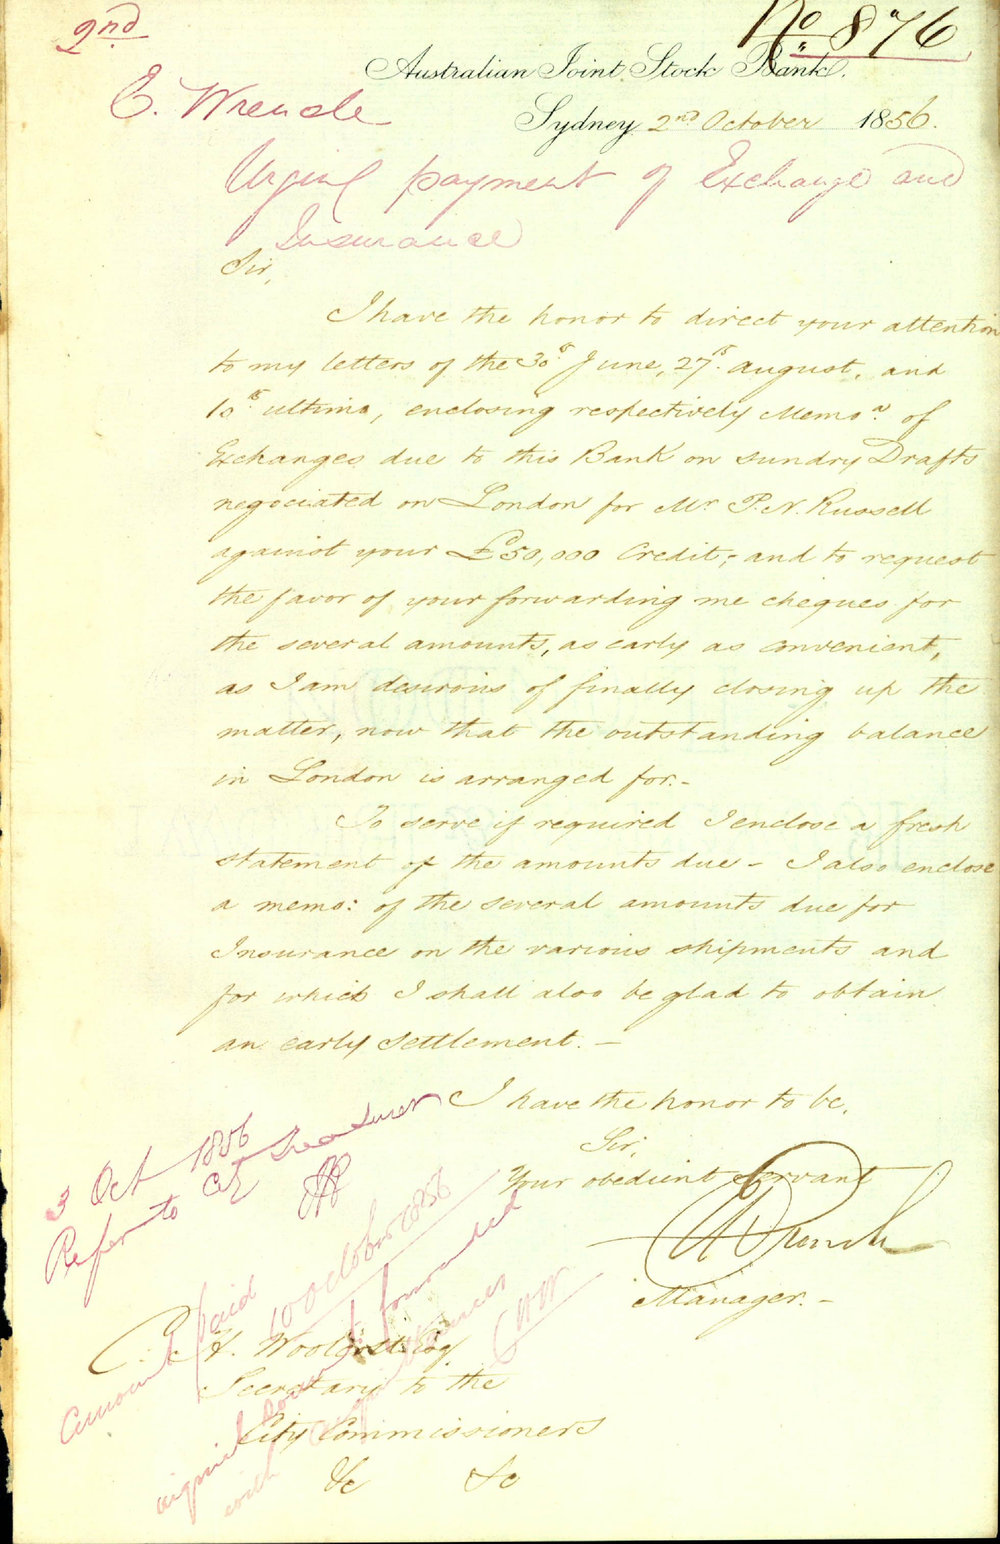 2nd
No 876
Australian Joint Stock Bank.
Sydney 2nd October 1856.
E. Wrench
Urging payment of Exchange and
Insurance
Sir,
I have the honor to direct your attention
to my letters of the 30th June, 27th August, and
10th ultimo, enclosing respectively Memoa. of
Exchanges due to this Bank on sundry Drafts
negociated on London for Mr P. N. Russell
against your £50,000 Credit; and to request
the favor of your forwarding me cheques for
the several amounts, as early as convenient,
as I am desirous of finally closing up the
matter, now that the outstanding balance
in London is arranged for.-
To serve if required I enclose a fresh
statement of the amounts due - I also enclose
a memo: of the several amounts due for
Insurance on the various shipments and
for which I shall also be glad to obtain
an early settlement. -
I have the honor to be,
Sir,
Your obedient Servant
Wrench
Manager. -
3 Oct 1856
Refer to City Treasurer
Amount paid
10 October 1856
forwarded
with
CHW
C. H. Woolcott Esq
Secretary to the
City Commissioners
&c &c